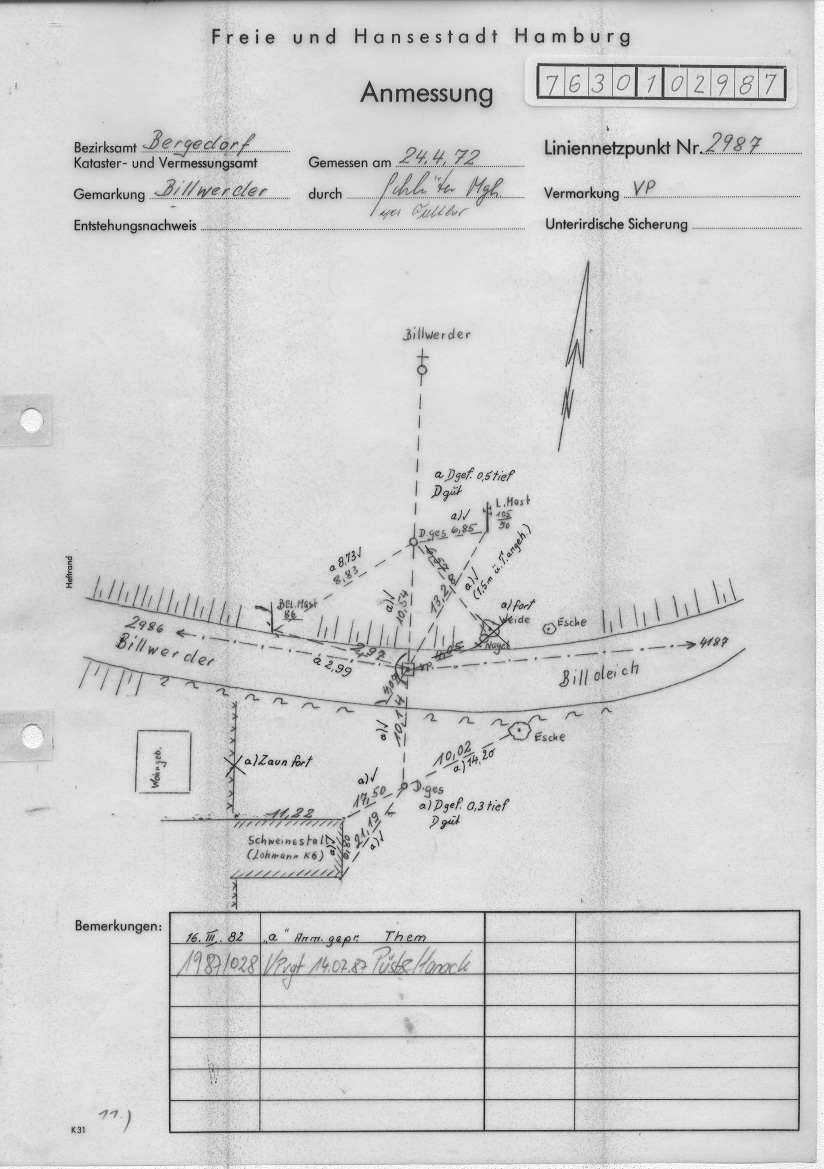 Freie und Hansestadt Hamburg
Anmessung
7630102987
Bezirksamt Bergedorf
Kataster- und Vermessungsamt
Gemessen am 24.4.72
Liniennetzpunkt Nr. 2987
Gemarkung Billwerder
durch Schlüter Mgh.
Vermarkung VP
Entstehungsnachweis
Unterirdische Sicherung
Billwerder
a Dgef. 0,5 tief
D gut
L.Mast
105
90
a)√
D.ges 6,85
a 8,73√
8,83
6,57
a)√
(1,5m ü.T. angeh.)
13,28
a)√
10,54
Heftrand
BEL.Mast
86
a) fort
Weide
Nagel
Esche
2986
Billwerder
2,97
a 2,99
VP.
4187
Billdeich
10,14
a)√
Esche
Wohngeb.
a) Zaun fort
10,02
a) 14,20
a)√
17,50
D.ges
a) Dgef. 0,3 tief
D gut
11,22
Schweinestall
(Lohmann K6)
a)√
6,80
21,19
a)√
Bemerkungen:
16. III. 82 „a“ Anm. gepr. Them
1987/028 VPvgt 14.07.87
K31
11.)